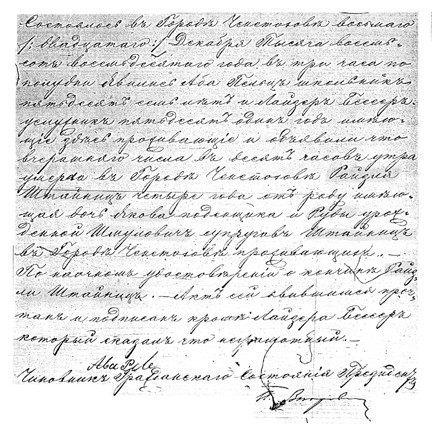 Состоялось въ Городѣ Ченстоховѣ восьмаго
/: двадцатаго :/ Декабря Тысяча восемь-
сотъ восемьдесятаго года въ три часа по
полудни явились Аба Пельцъ школьникъ
пятьдесятъ семь лѣтъ и Лайзеръ Бессеръ
услужникъ пятьдесятъ одинъ годъ имѣю-
щіе здѣсь проживающіе и объявили что
вчерашняго числа въ десять часовъ утра
умерла въ Городѣ Ченстоховѣ Райзля
Штайницъ четыре года отъ роду имѣю-
щая дочь Якова поденщика и Рувы урож-
денной Шмулевичъ супруговъ Штайницъ
въ Городѣ Ченстоховѣ проживающихъ. —
По наочномъ удостовѣреніи о кончинѣ Райз-
ли Штайницъ. — Актъ сей явившимся проч-
танъ и подписанъ кромѣ Лайзера Бессеръ
который сказалъ что неграмотный. —
Аба
Чиновникъ Гражданскаго Состоянія Президентъ